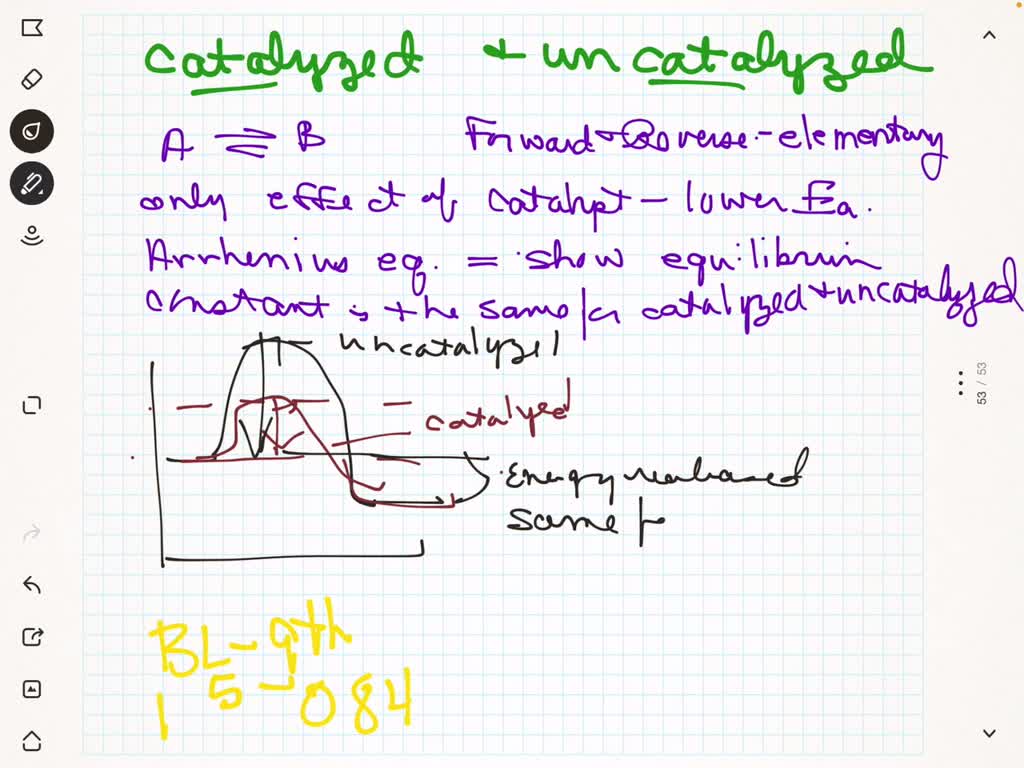 catalyzed + uncatalyzed
A ⇌ B Forward + Reverse - elementary
only effect of catalyst - lower Ea.
Arrhenius eq. = show equilibrium
constant is the same for catalyzed + uncatalyzed
uncatalyzed
catalyzed
Energy released
same
BL-9th
15-084
53 / 53